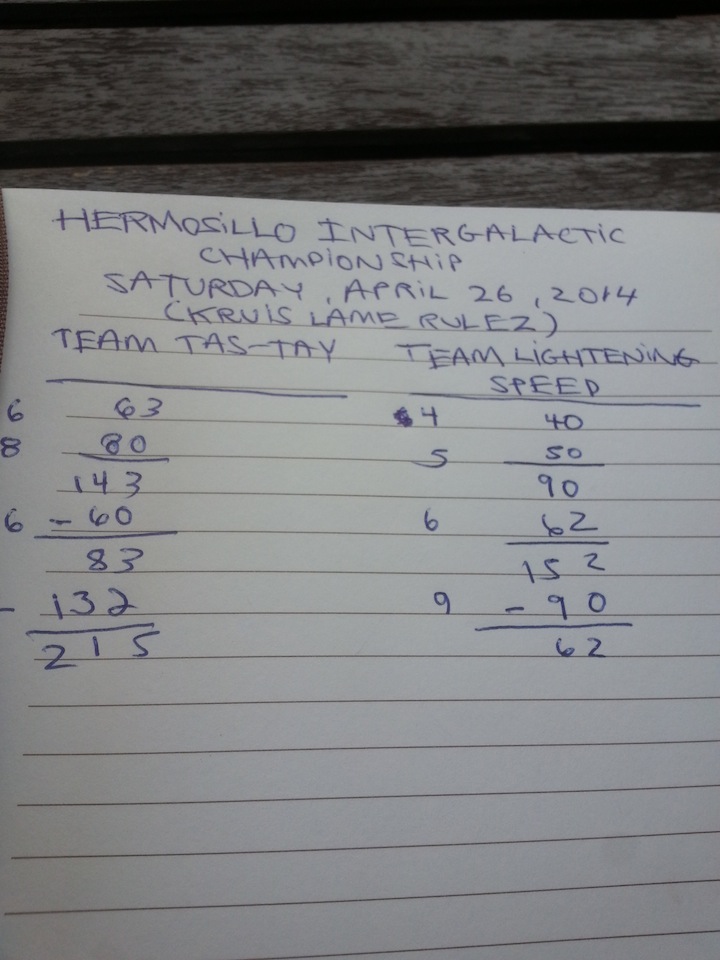 HERMOSILLO INTERGALACTIC
CHAMPIONSHIP
SATURDAY, APRIL 26, 2014
(KRUIS LAME RULEZ)
TEAM TAS-TAY
6 63
8 80
143
6 -60
83
- 132
215
TEAM LIGHTENING
SPEED
4 40
5 50
90
6 62
152
9 -90
62